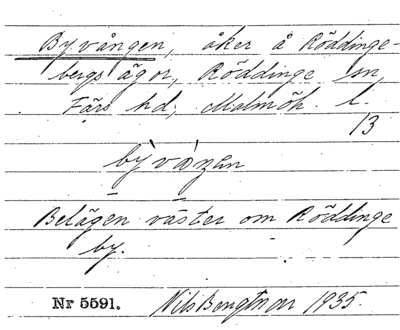 Byvången, åker å Röddinge-
bergs ägor, Röddinge sn,
Färs hd, Malmöh. l.
13
Belägen väster om Röddinge
by.
Nr 5591. Nils Bengtsson 1935.